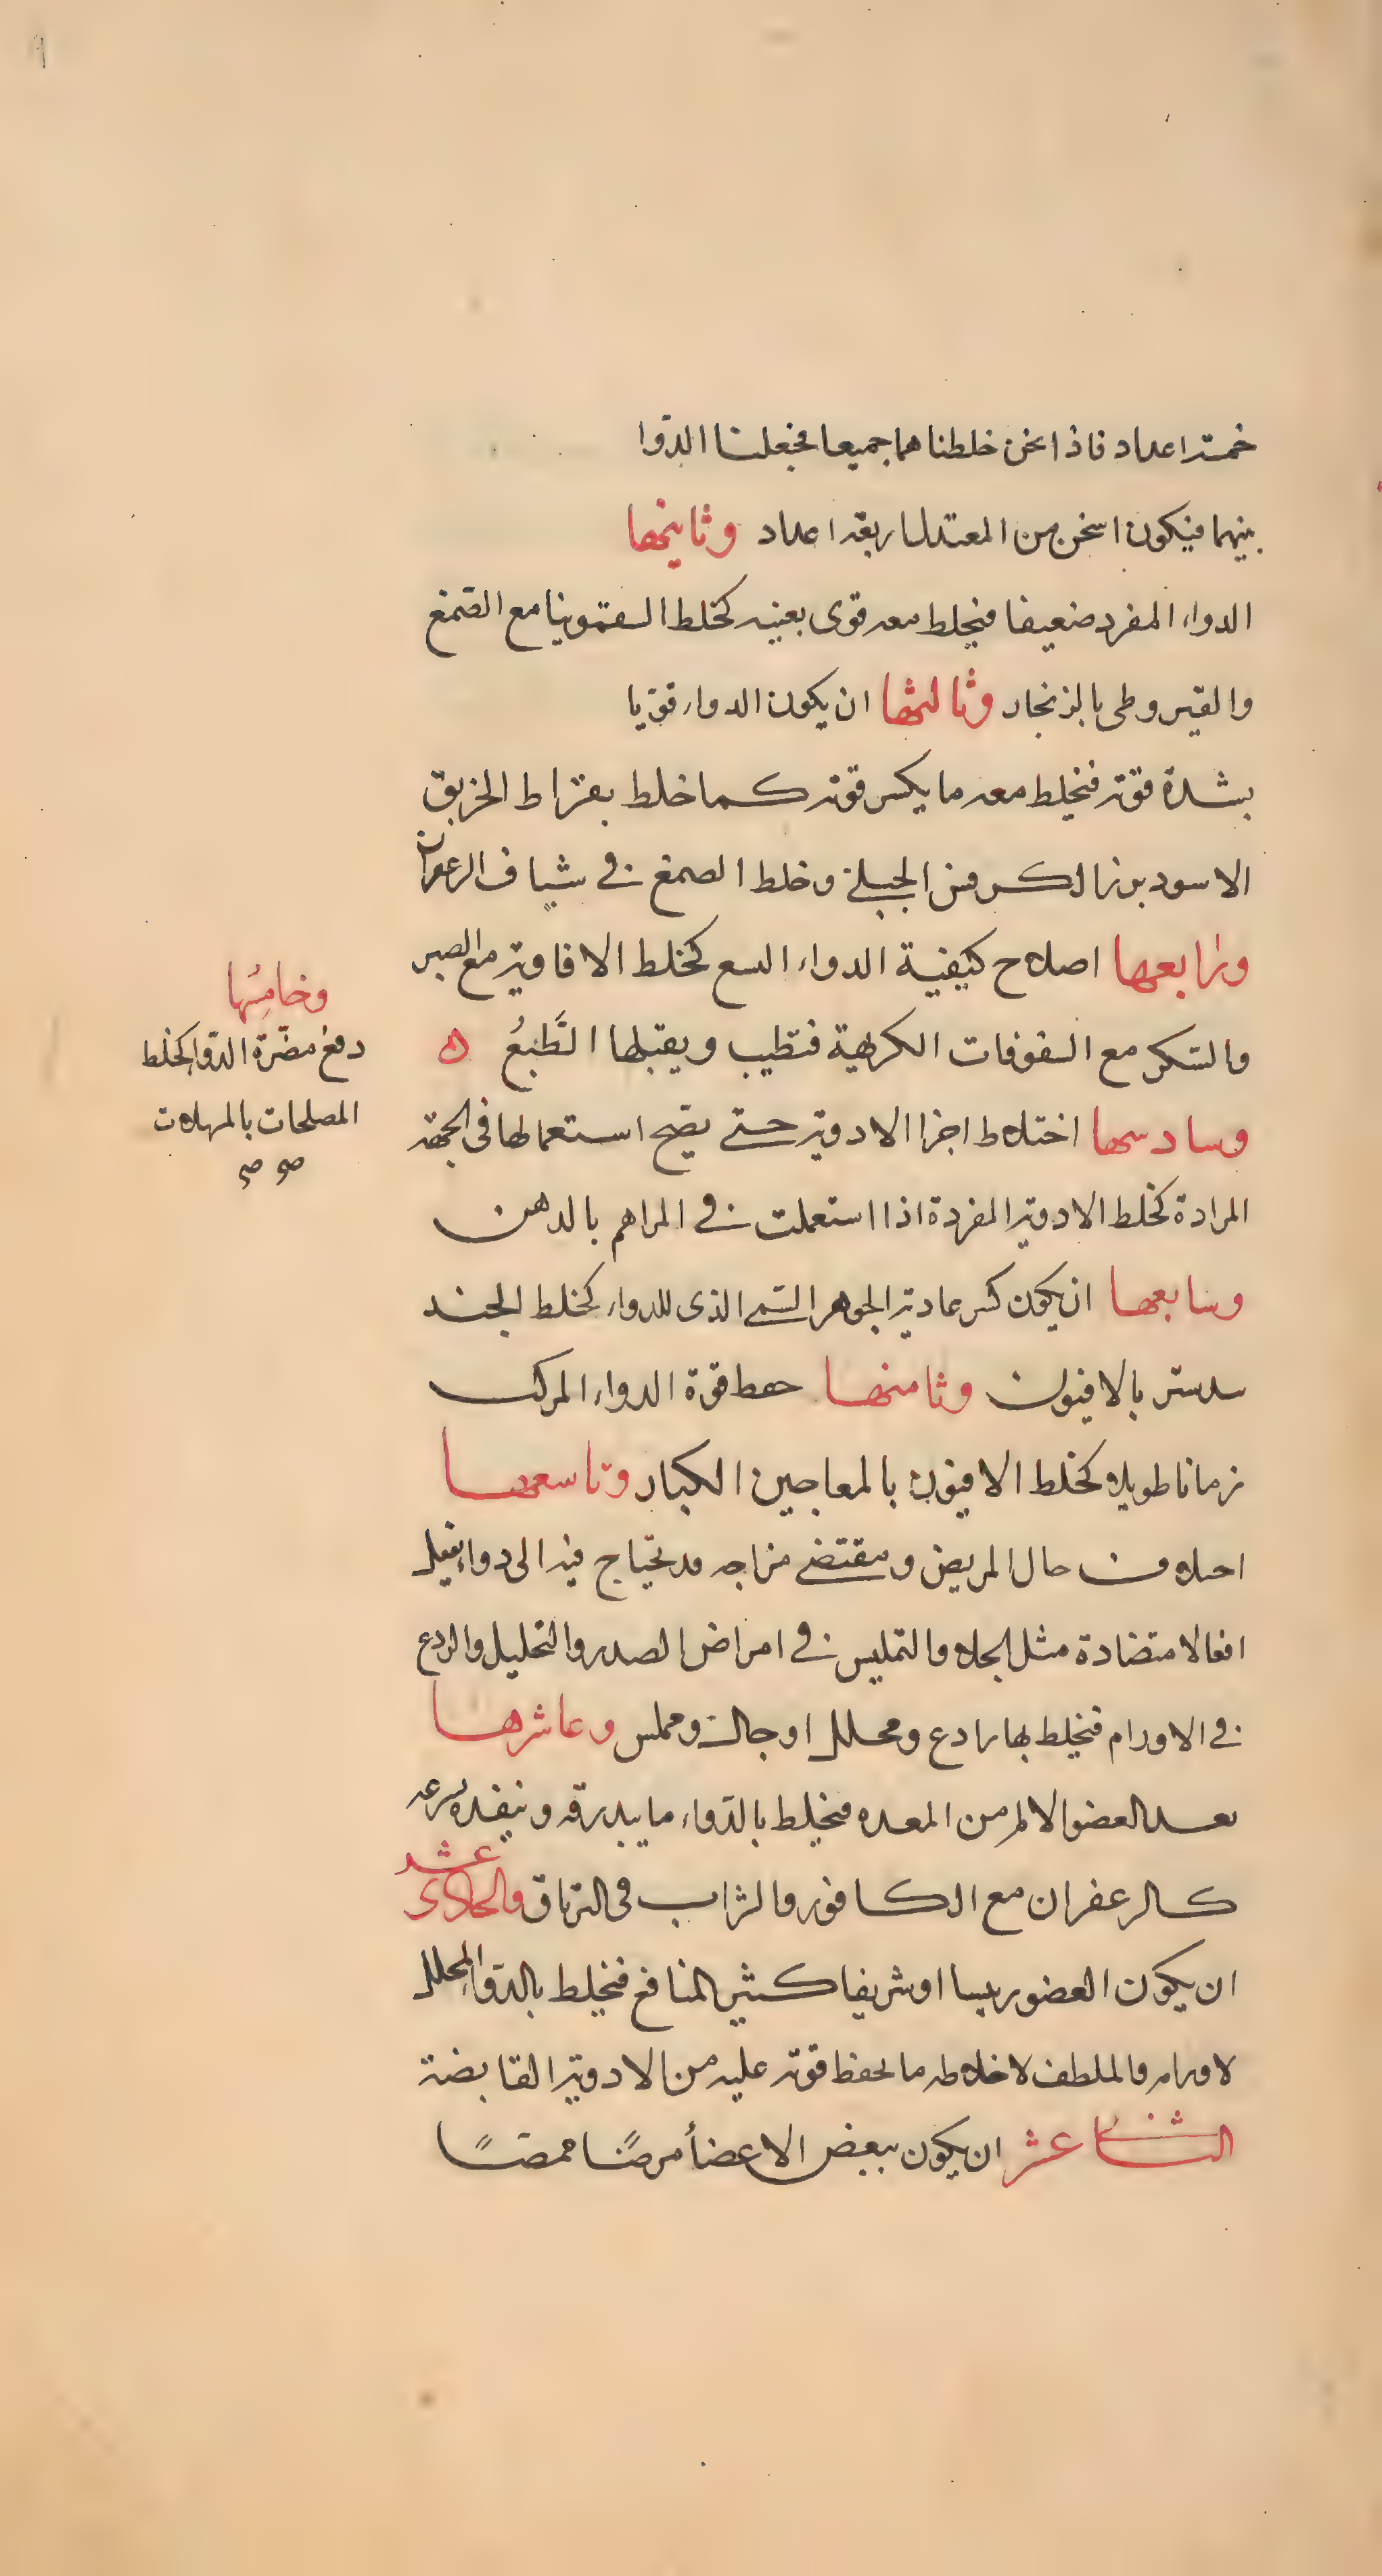 خمسة اعداد فاذا نحن خلطناهما جميعا فجعلنا الدوا
بينهما فيكون اسخن من المعتدل اربعة اعداد وثانيها
الدواء المفرد ضعيفا فيخلط معه قوى يعينه كخلط السقمونيا مع الصمغ
والقيروطى بالزنجار وثالثها ان يكون الدواء قويا
بشدة قوته فيخلط معه ما يكسر قوته كما خلط بقراط الخربق
الاسود ببزر الكرفس الجبلى وخلط الصمغ فى شياف الزعفران
ورابعها اصلاح كيفية الدواء البشع كخلط الافاويه مع الصبر
والسكر مع السفوفات الكريهة فتطيب ويقبلها الطَّبعُ
وخامِسُها
دفع مضرّة الدوا كخلط
المصلحات بالمسهلات
صح صح
وسادسها اختلاط اجزا الادوية حتى يصح استعمالها فى الجهة
المرادة كخلط الادوية المفردة اذا استعملت فى المراهم بالدهن
وسابعها ان يكون كسر عادية الجوهر السّمى الذى للدواء كخلط الجند
بدستر بالافيون وثامنها حفظ قوة الدواء المركب
زمانا طويلا كخلط الافيون بالمعاجين الكبار وتاسعها
اختلاف حال المريض ومقتضى مزاجه قد يحتاج فيه الى دواء يفعل
افعالا متضادة مثل الجلاء والتمليس فى امراض الصدر والتحليل والردع
فى الاورام فيخلط بها رادع ومحلل او جال ومملس وعاشرها
بعد العضو الالم من المعده فيخلط بالدّواء ما يبدرقه وينفذه بسرعه
كالزعفران مع الكافور والشراب فى الترياق والحادى عشر
ان يكون العضو رييسا او شريفا كثير المنافع فيخلط بالدّوا المحلل
لاورامه والملطف لاخلاطه ما يحفظ قوته عليه من الادوية القابضة
الثانى عشر ان يكون ببعض الاعضأ مرضًا ممضًّا